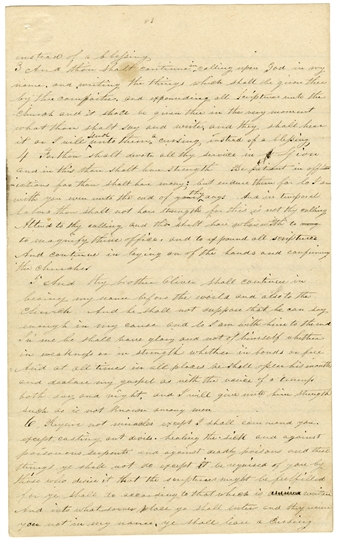 instead of a blessing,
3 And thou shalt continue in calling upon God in my
name, and writing the things which shall be given thee
by the comforter, and expounding all scriptures unto the
Church and it shall be given thee in the very moment
what thou shalt say and write, and they shall hear
it or I will send unto them a cursing, instead of a blessing
4 For thou shalt devote all thy service in Zion
and in this thou shalt have strength Be patient in affli
ctions for thou shalt have many; but endure them for lo I am
with you even unto the end of thy days And in temporal
labors thou shalt not have strength for this is not thy calling
Attend to thy calling and thou shalt have wherewith
to magnify thine office, and to expound all scriptures
And continue in laying on of the hands and confirming
the Churches
5 And thy brother Oliver shall continue in
bearing my name before the world and also to the
Church And he shall not suppose that he can say
enough in my cause and lo I am with him to the end
In me he shall have glory and not of himself whether
in weakness or in strength whether in bonds or free
And at all times in all places he shall open his mouth
and declare my gospel as with the voice of a trump
both day and night, and I will give unto him strength
such as is not known among men
6 Require not miracles except I shall command you,
except casting out devils healing the sick and against
poisonous serpents and against deadly poisons and these
things ye shall not do except it be required of you by
those who desire it that the scriptures might be fulfilled
for ye shall do according to that which is written
And in whatsoever place ye shall enter and they receive
you not in my name, ye shall leave a cursing